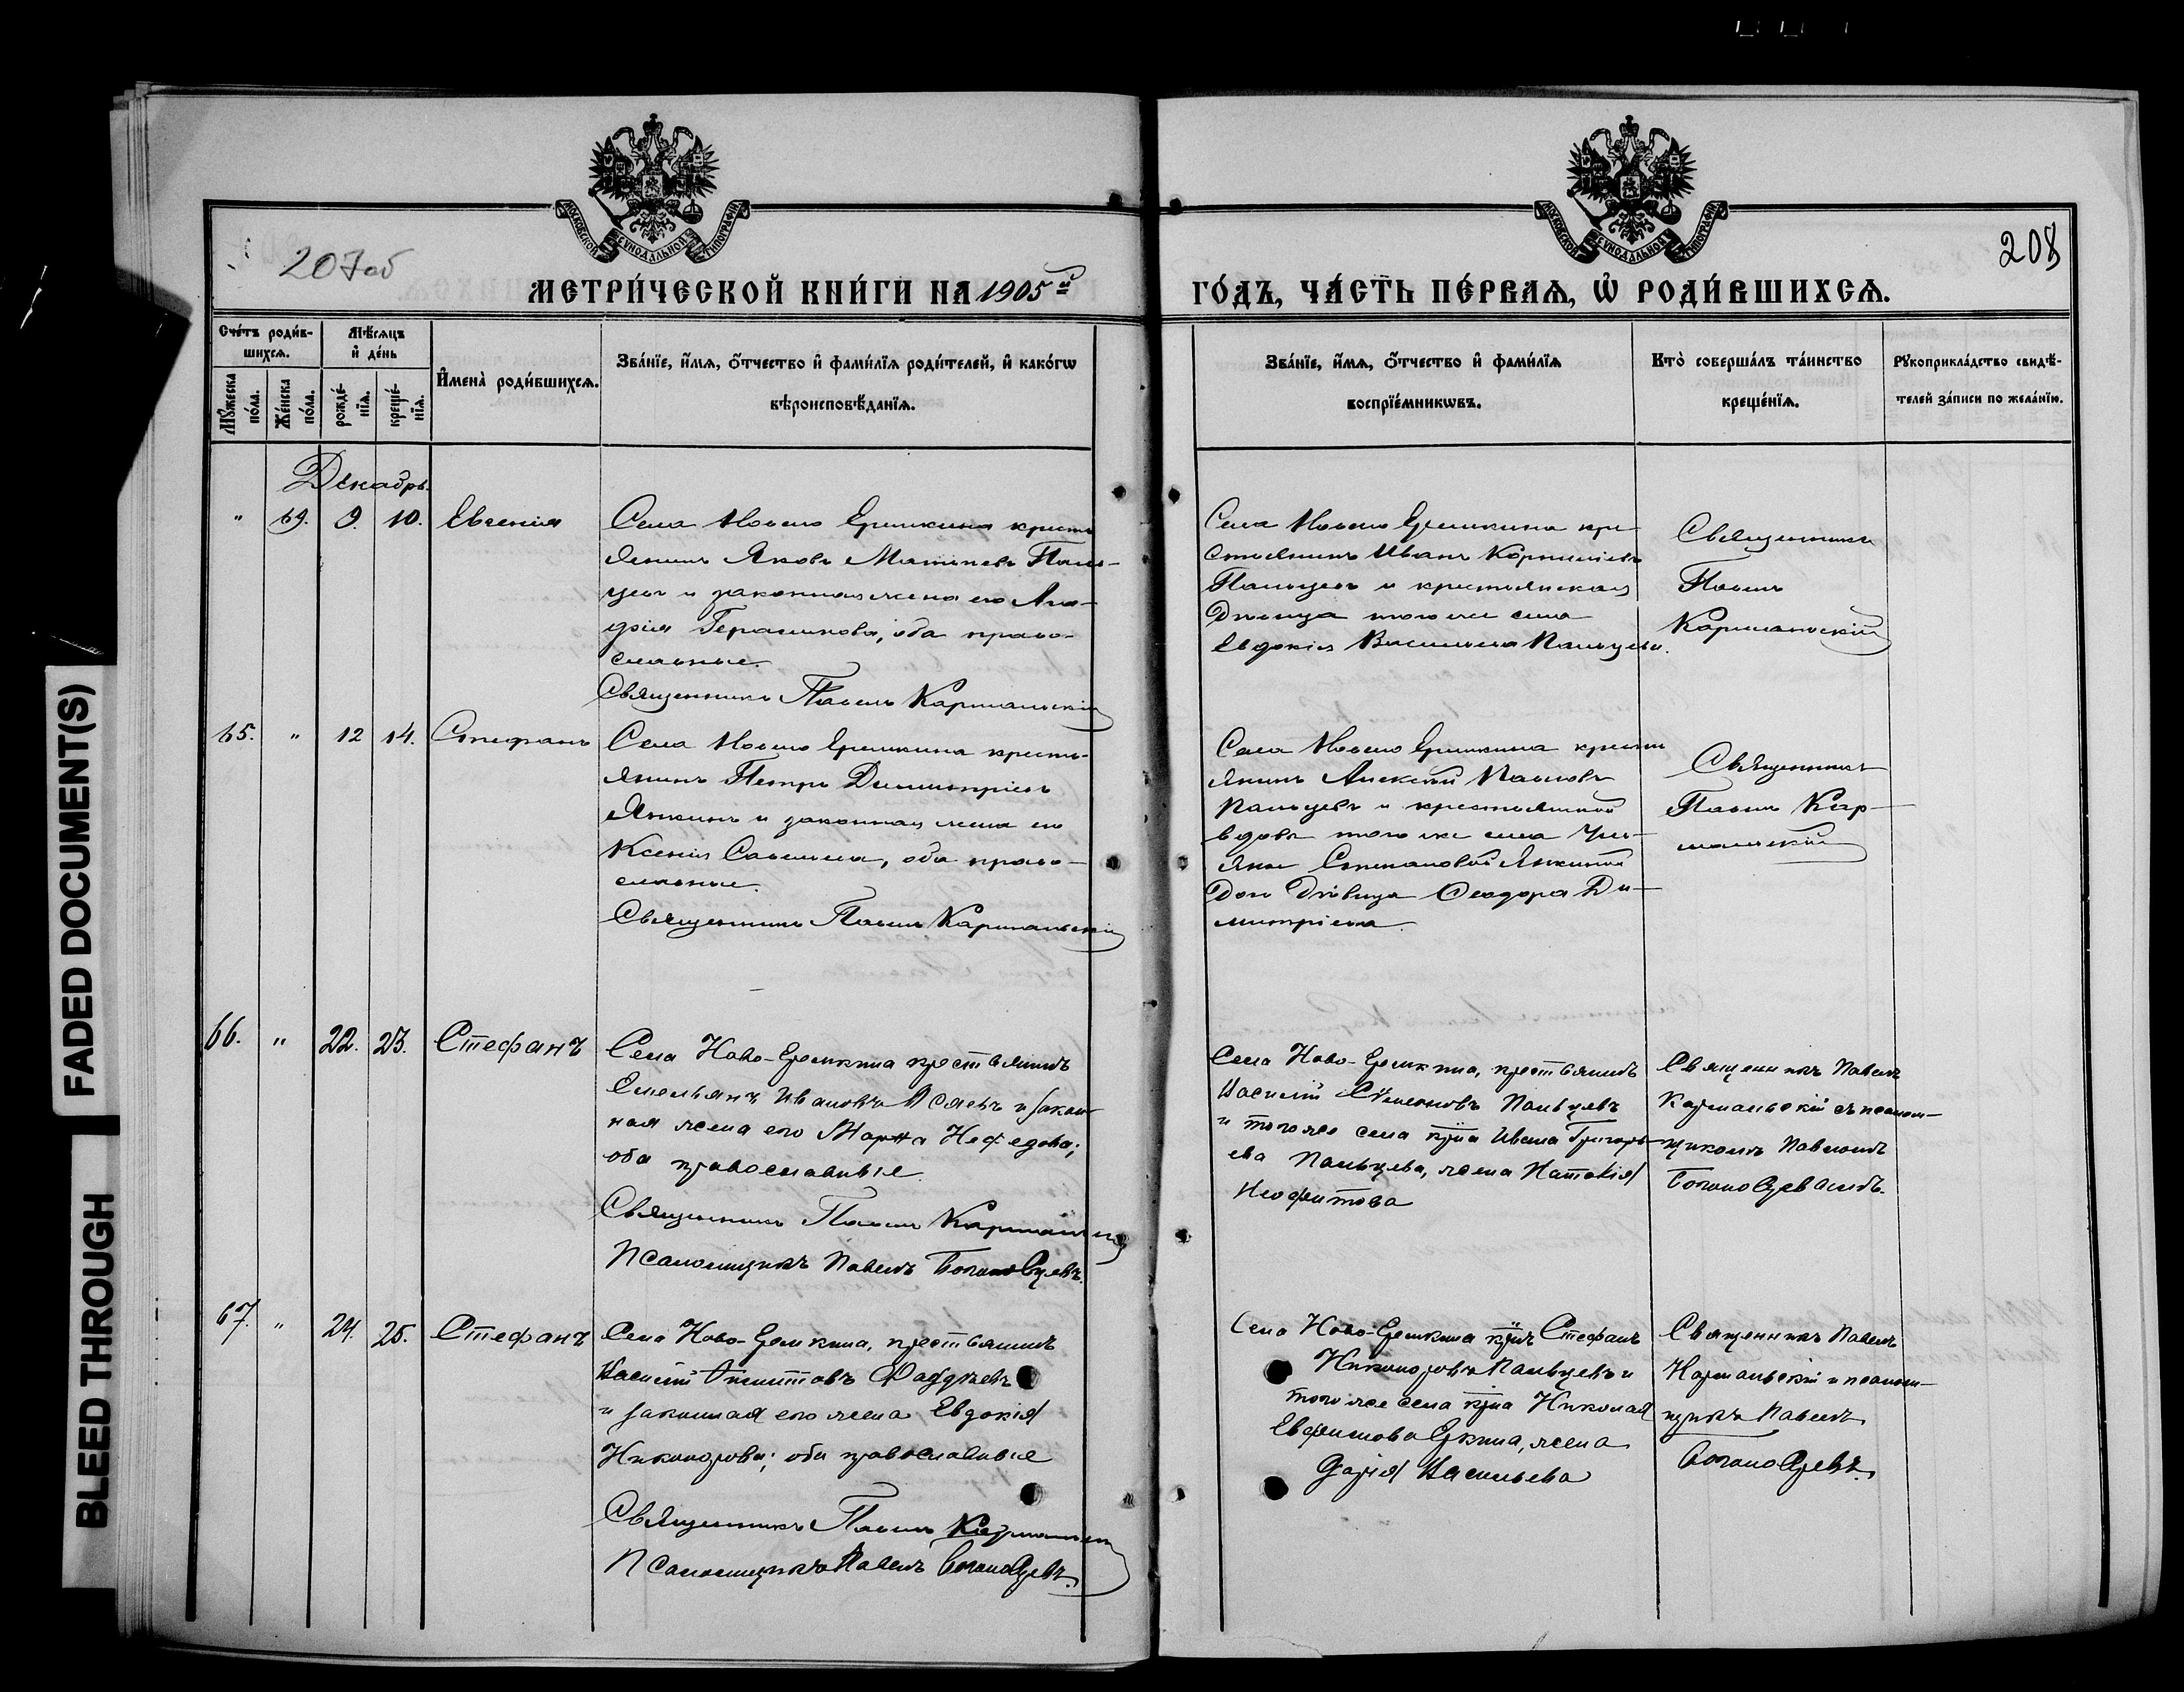 207 об
208
МОСКОВСКОЙ СѴНОДАЛЬНОЙ ТИПОГРАФІИ
МОСКОВСКОЙ СѴНОДАЛЬНОЙ ТИПОГРАФІИ
МЕТРИ́ЧЕСКОЙ КНИ́ГИ НА 1905й ГО́ДЪ, ЧА́СТЬ ПЕ́РВАѦ, Ѡ҆ РОДИ́ВШИХСѦ.
Сче́тъ роди́в-
шихсѧ.
Мꙋ́жеска по́ла.
Же́нска по́ла.
Мѣ́сѧцъ
и҆ де́нь
рожде́-
нїѧ.
креще́-
нїѧ.
И҆мена̀ роди́вшихсѧ.
Зва́нїе, и҆́мѧ, ѻ҆́тчество и҆ фами́лїѧ роди́телей, и҆ како́гѡ
вѣроисповѣ́данїѧ.
Зва́нїе, и҆́мѧ, ѻ҆́тчество и҆ фами́лїѧ
воспрїе́мникѡвъ.
Кто̀ соверша́лъ та́инство
креще́нїѧ.
Рꙋкоприкла́дство свидѣ́-
телей за́писи по жела́нїю.
Декабрь.
" 69. 9. 10. Евгенія
Села Новаго Еремкина кресть
янинъ Яковъ Матѳеевъ Паль-
цевъ и законная жена его
Герасимова, оба право-
славные.
Священникъ Павелъ Кармальскій
Села Новаго Еремкина кре-
стьянинъ Иванъ Корниліевъ
Пальцевъ и крестьянская
дѣвица того же села
Евдокія Васильева Пальцева.
Священникъ
Павелъ
Кармальскій
65. " 12 14. Стефанъ
Села Новаго Еремкина кресть-
янинъ Петръ Димитріевъ
Янкинъ и законная жена его
Ксенія Савельева, оба право-
славные.
Священникъ Павелъ Кармальскій
Села Новаго Еремкина кресть
янинъ Алексѣй Павловъ
Пальцевъ и крестьянской
вдовы того же села Уль-
яны Степановой Янкиной
дочь дѣвица Ѳеодора Ди-
митріева.
Священникъ
Павелъ Кар-
мальскій
66. " 22. 23. Стефанъ
Села Ново-Еремкина крестьянинъ
Емельянъ Ивановъ Асяевъ и закон-
ная жена его Марѳа Нефедова;
оба православные.
Священникъ Павелъ Кармальскій
Псаломщикъ Павелъ
Села Ново-Еремкина, крестьянинъ
Василій Сѵмеоновъ Пальцевъ
и того же села кр-на Ивана Григорь-
ева Пальцева, жена Наталія
Неофитова
Священникъ Павелъ
Кармальскій съ псалом-
щикомъ Павломъ
67. " 24. 25. Стефанъ
Села Ново-Еремкина, крестьянинъ
Василій Ѳаддѣевъ
и законная его жена Евдокія
Никонорова; оба православные
Священникъ Павелъ Кармальскій
Псаломщикъ Павелъ
Села Ново-Еремкина кр-нъ Стефанъ
Никоноровъ Пальцевъ и
того же села кр-на Николая
Евфимова Еркина, жена
Дарія Васильева
Священникъ Павелъ
Кармальскій и псалом-
щикъ Павелъ
FADED DOCUMENT(S)
BLEED THROUGH